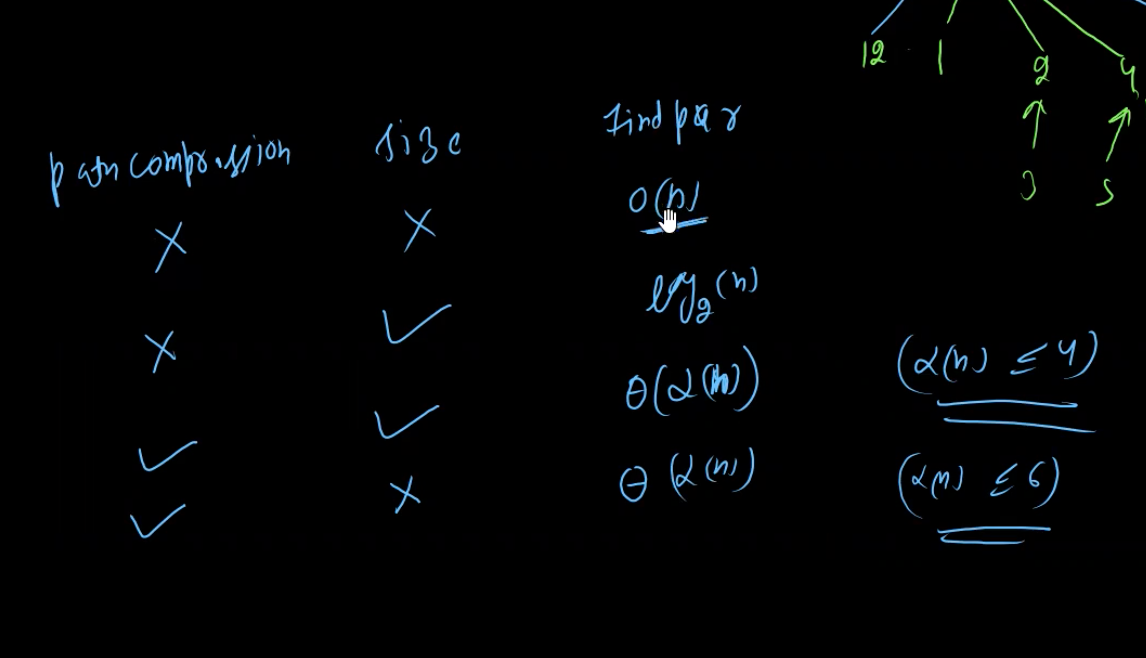 12 1 2 4
3 5
path compression size findpar
X X O(n)
X ✓ log₂(n)
✓ ✓ θ(α(n)) (α(n) ≤ 4)
✓ X θ(α(n)) (α(n) ≤ 6)